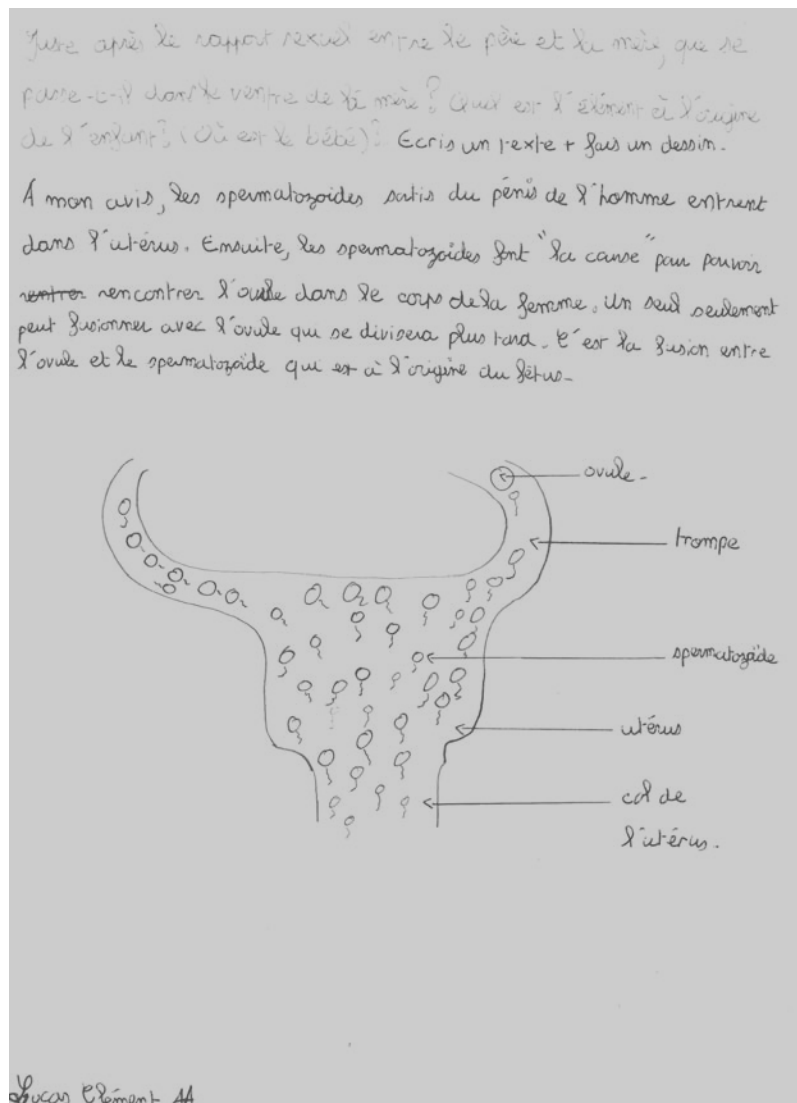 Juste après le rapport sexuel entre le père et la mère, que se
passe-t-il dans le ventre de la mère? Quel est l'élément à l'origine
de l'enfant? (Où est le bébé)? Ecris un texte + fais un dessin.
A mon avis, les spermatozoides sortis du pénis de l'homme entrent
dans l'utérus. Ensuite, les spermatozoides font "la course" pour pouvoir
rentrer rencontrer l'ovule dans le corps de la femme. Un seul seulement
peut fusionner avec l'ovule qui se divisera plus tard. C'est la fusion entre
l'ovule et le spermatozoïde qui est à l'origine du fétus.
ovule.
trompe
spermatozoïde
utérus
col de
l'utérus.
Lucas Clément